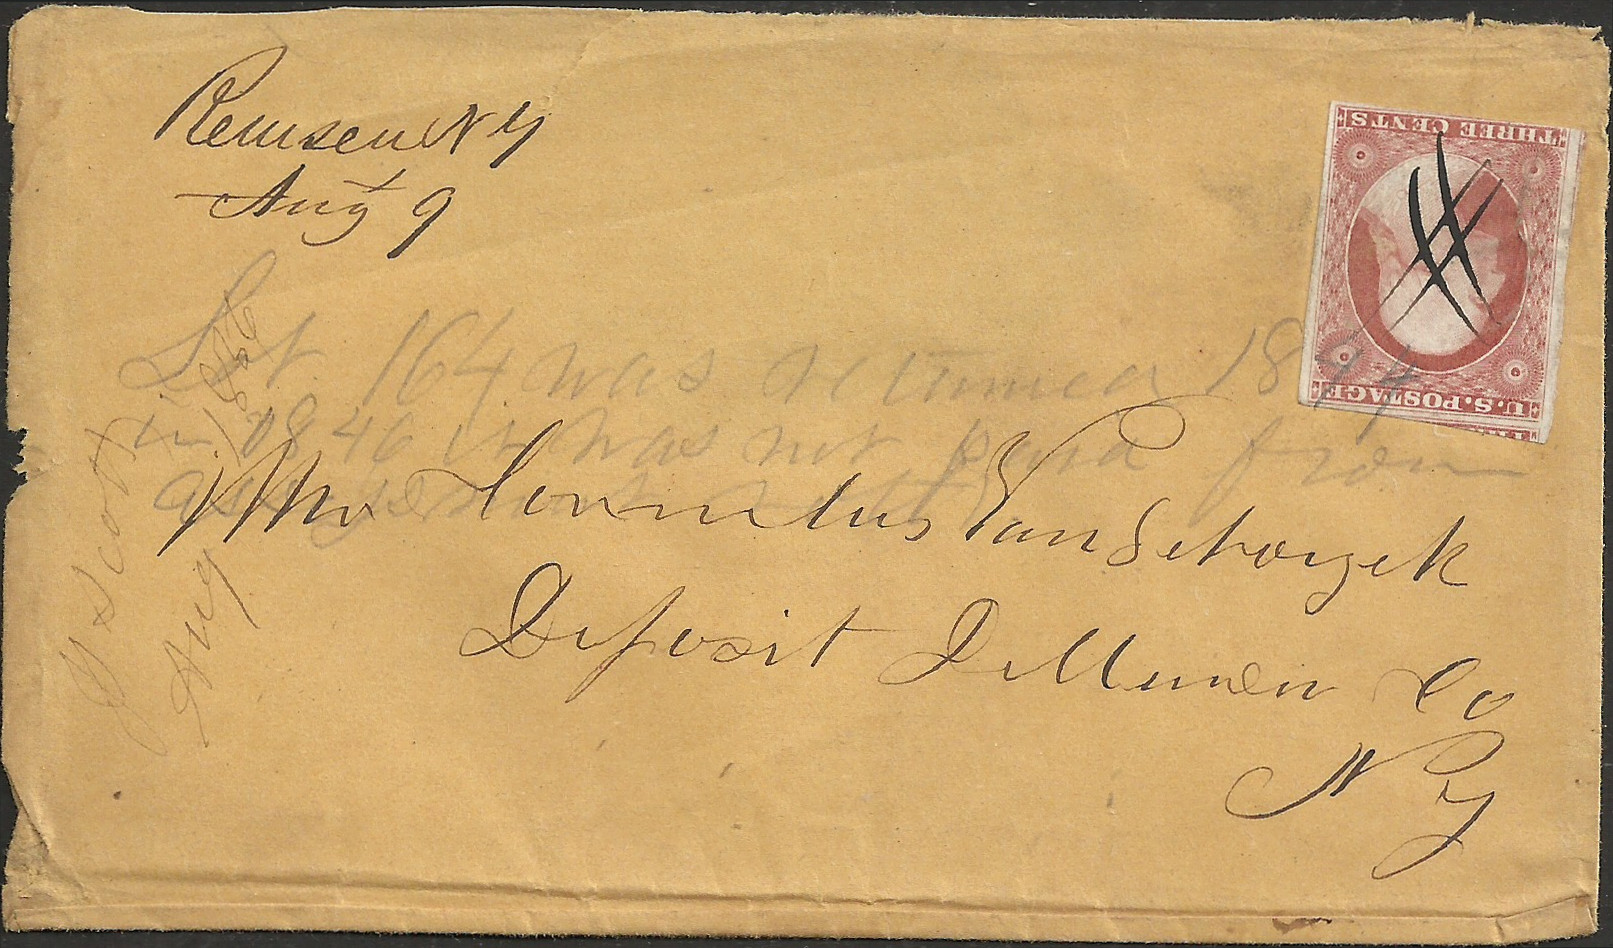 Remsen N Y
Aug 9
THREE CENTS
U.S. POSTAGE
Lot 164 was returned 1844
in 1846 it was not paid from
J Scott
Aug 1856
Mr Cornelius Van Schoyek
Deposit Delleware Co
N Y